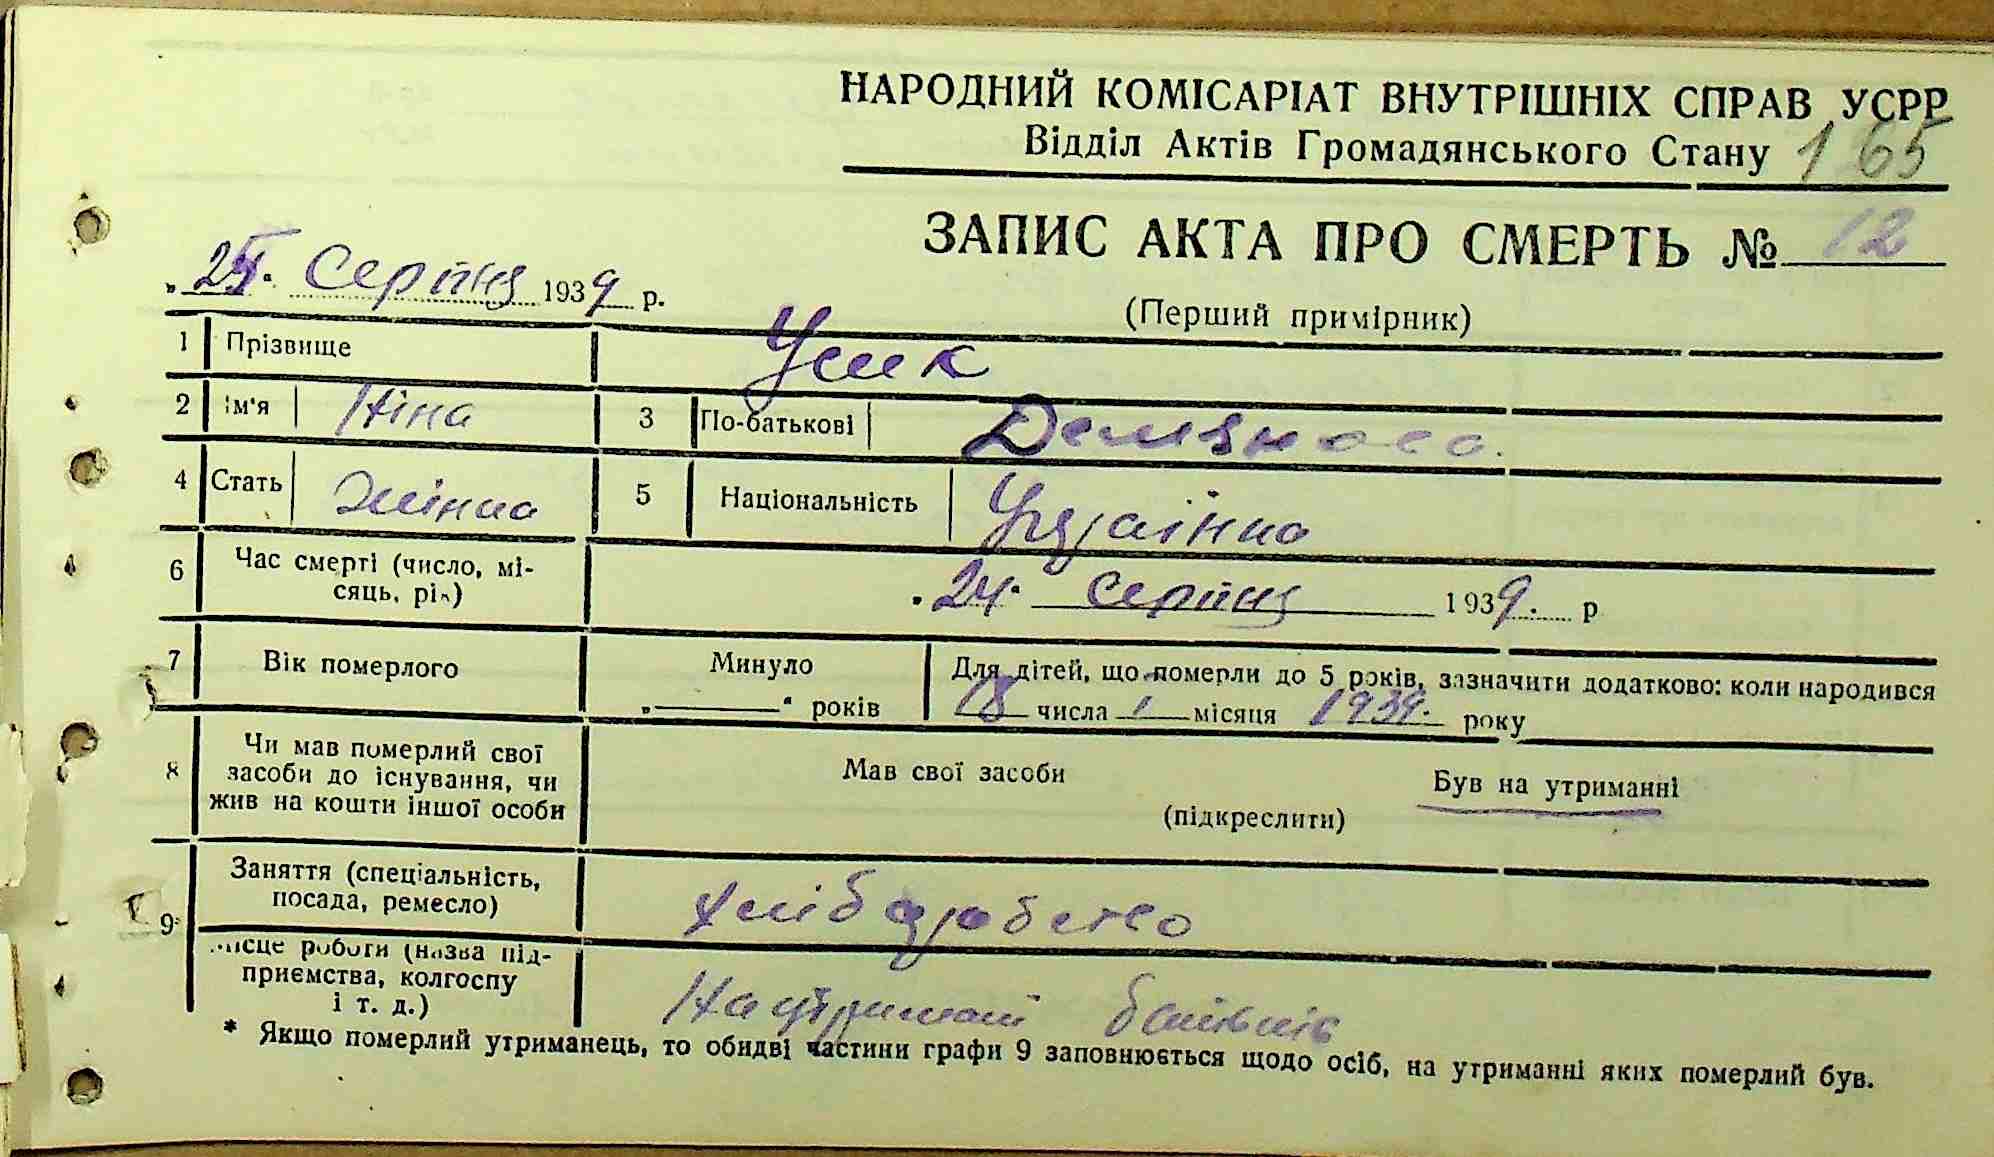 НАРОДНИЙ КОМІСАРІАТ ВНУТРІШНІХ СПРАВ УСРР
Відділ Актів Громадянського Стану 165
ЗАПИС АКТА ПРО СМЕРТЬ № 12
„ 25 “ Серпня 1939 р.
(Перший примірник)
1 Прізвище Усик
2 Ім'я Ніна 3 По-батькові
4 Стать Жінка 5 Національність Українка
6 Час смерті (число, мі-
сяць, рік) „ 24 “ Серпня 1939. р
7 Вік померлого Минуло Для дітей, що померли до 5 років, зазначити додатково: коли народився
„ — “ років 18 числа 1 місяця 1939. року
8 Чи мав померлий свої
засоби до існування, чи
жив на кошти іншої особи
Мав свої засоби Був на утриманні
(підкреслити)
9 Заняття (спеціальність,
посада, ремесло) хліборобство
Місце роботи (назва під-
приємства, колгоспу
і т. д.) На утримані батьків
* Якщо померлий утриманець, то обидві частини графи 9 заповнюється щодо осіб, на утриманні яких померлий був.